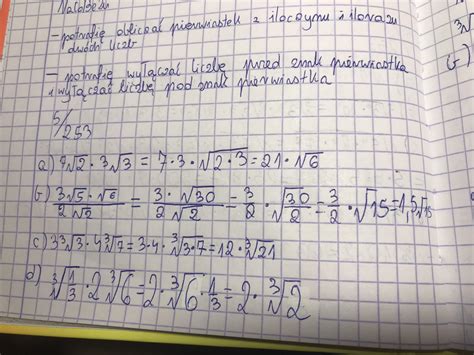 - potrafię obliczać pierwiastek z iloczynu i ilorazu
dwóch liczb
- potrafię wyłączać liczbę przed znak pierwiastka
i włączać liczbę pod znak pierwiastka
5/253
a) 7√2 · 3√3 = 7·3·√(2·3) = 21·√6
b) (3√5·√6)/(2√2) = (3·√30)/(2√2) = 3/2 · √(30/2) = 3/2 · √15 = 1,5√15
c) 3∛3 · 4∛7 = 3·4·∛(3·7) = 12·∛21
d) ∛(1/3) · 2∛6 = 2·∛(6·1/3) = 2·∛2